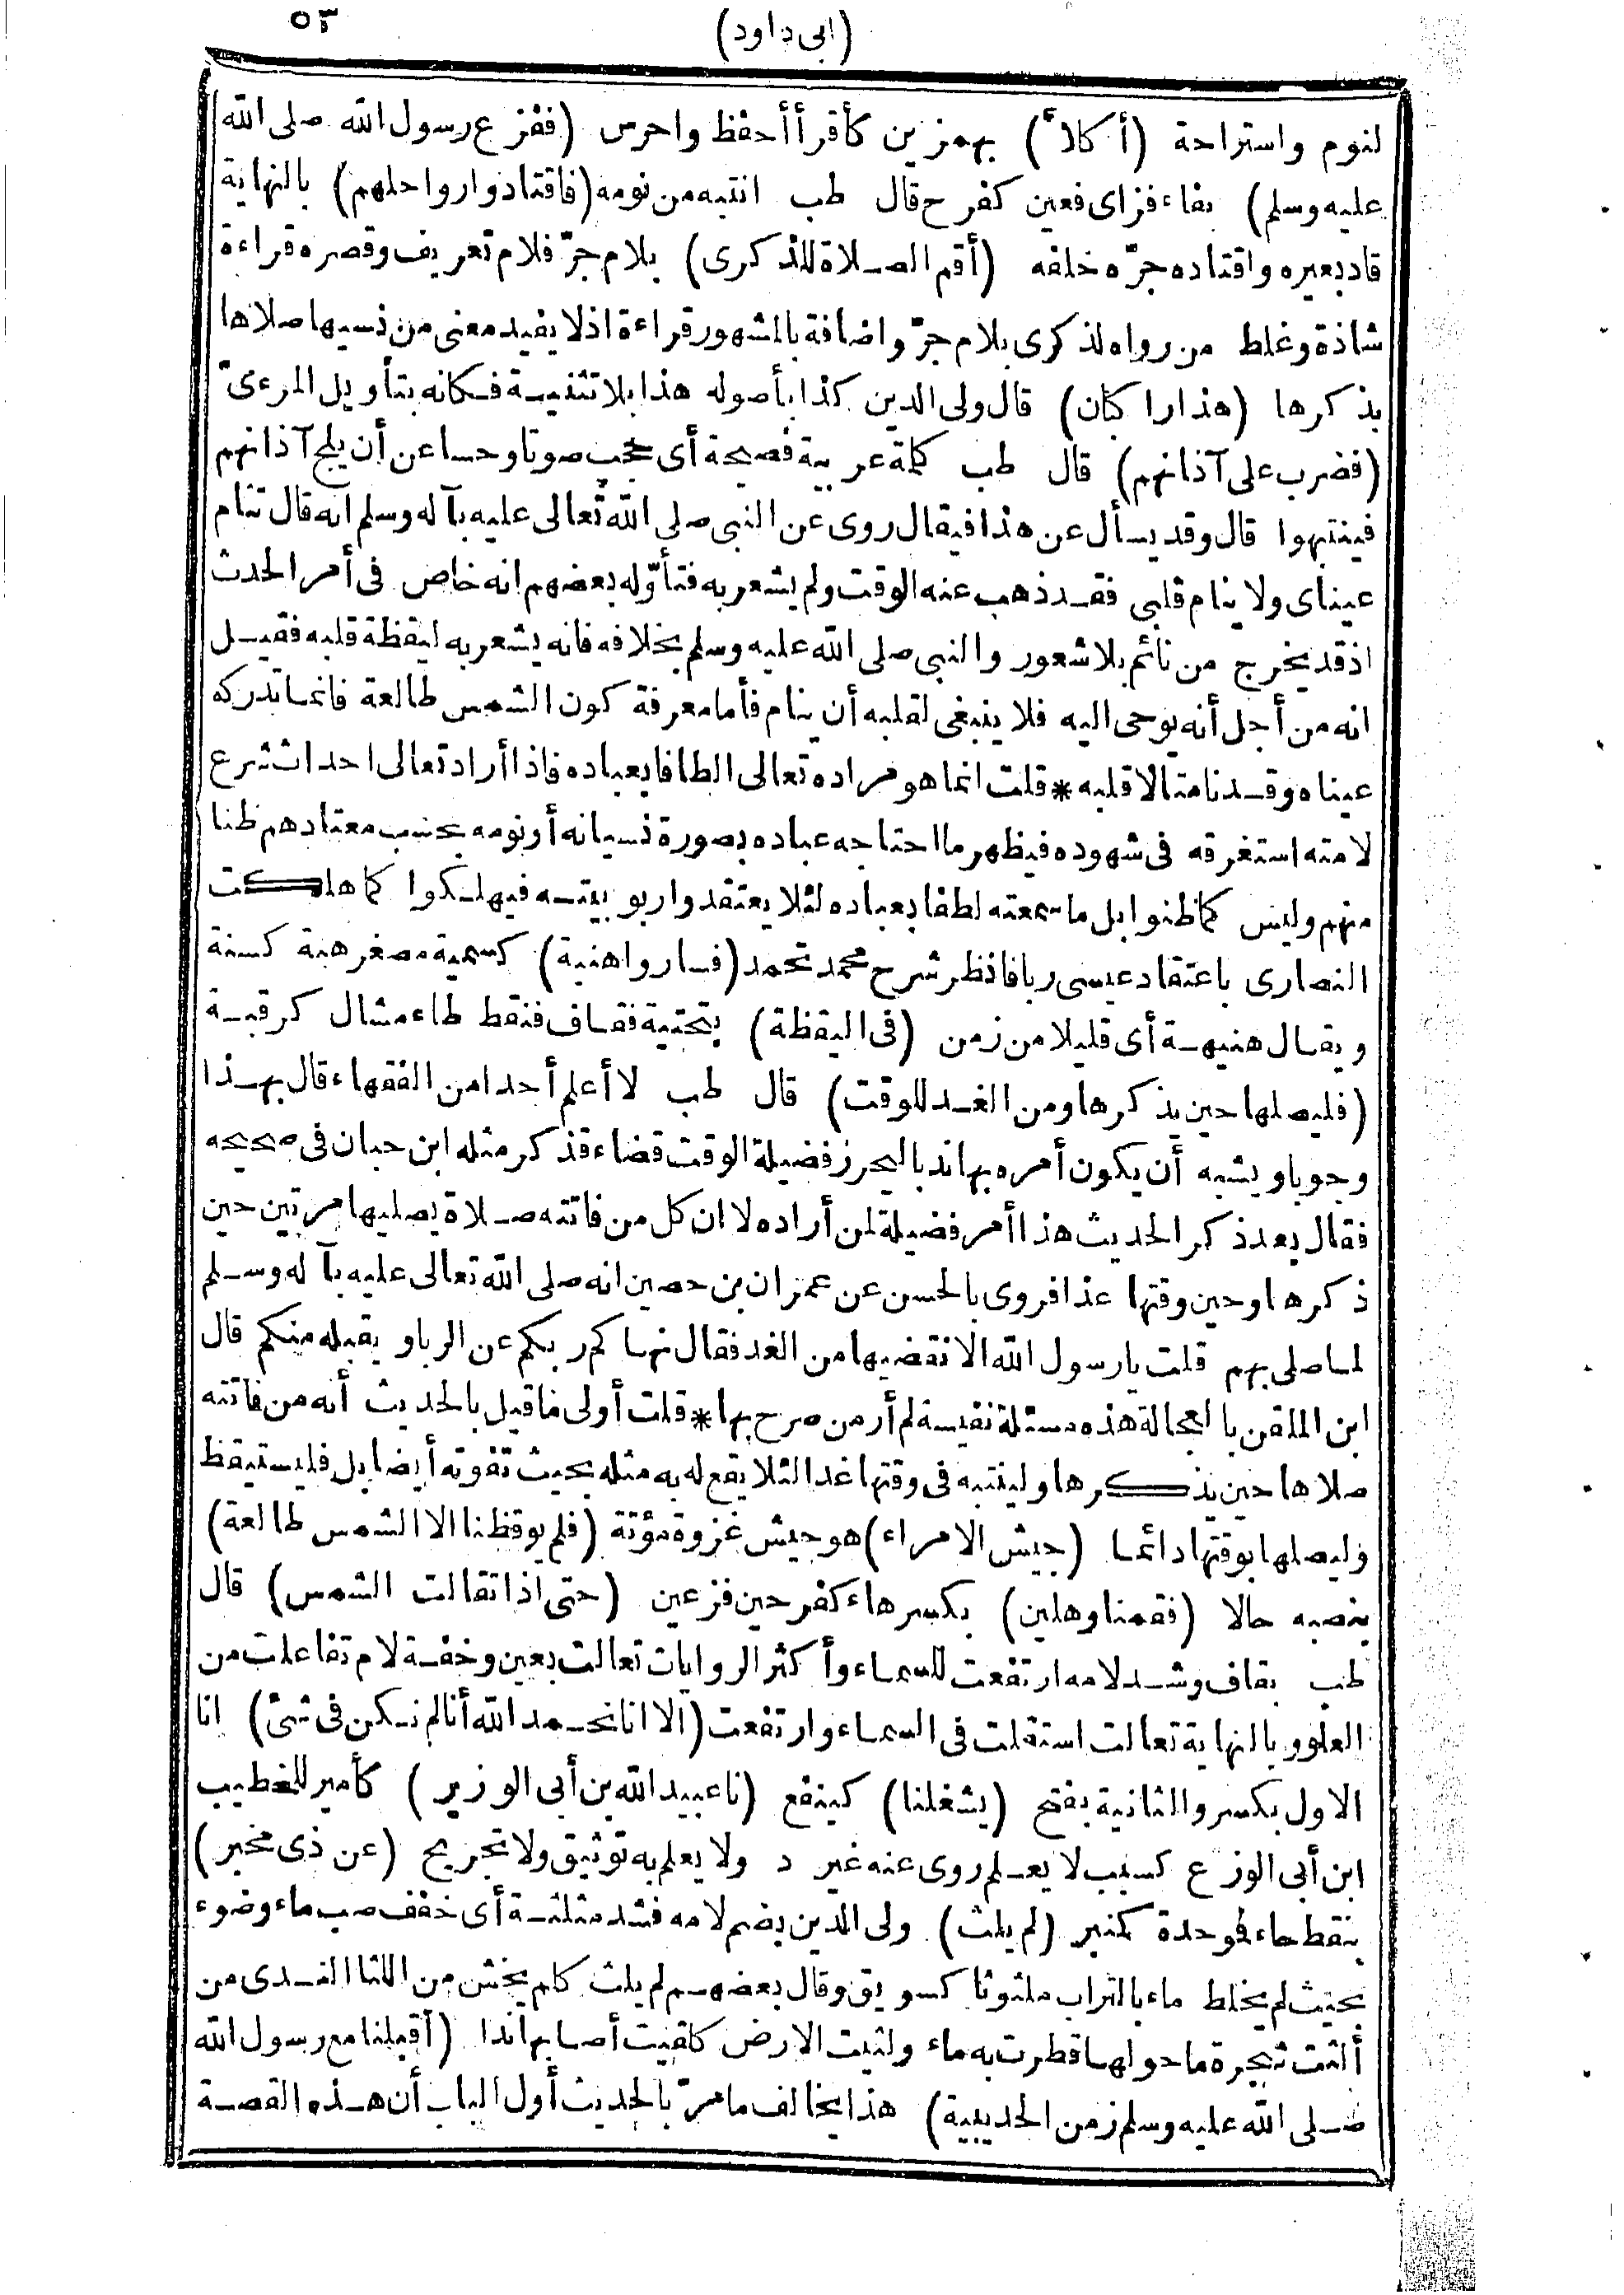 (ابى داود) ٥٣
لنوم واستراحة (أكلأ) بهمزين كأقرأ أحفظ واحرس (ففزع رسول الله صلى الله
عليه وسلم) بفاء فزاى فعين كفرح قال طب انتبه من نومه (فاقتادوا رواحلهم) بالنهاية
قاد بعيره واقتاده جرّه خلفه (أقم الصلاة للذكرى) بلام جرّ فلام تعريف وقصره قراءة
شاذة وغلط من رواه لذكرى بلام جرّ واضافة بالمشهور قراءة اذ لا يفيد معنى من نسيها صلاها
بذكرها (هذا راكبان) قال ولى الدين كذا بأصوله هذا بلا تثنية فكانه بتأويل المرءىّ
(فضرب على آذانهم) قال طب كلمة عربية فصيحة أى حجب صوتا وحسا عن أن يلج آذانهم
فينتبهوا قال وقد يسأل عن هذا فيقال روى عن النبى صلى الله تعالى عليه بآله وسلم انه قال تنام
عيناى ولا ينام قلبى فقد ذهب عنه الوقت ولم يشعر به فتأوّله بعضهم انه خاص فى أمر الحدث
اذ قد يخرج من نائم بلا شعور والنبى صلى الله عليه وسلم بخلافه فانه يشعر به ليقظة قلبه فقيل
انه من أجل أنه يوحى اليه فلا ينبغى لقلبه أن ينام فأما معرفة كون الشمس طالعة فانما تدركه
عيناه وقد نامتا لا قلبه * قلت انما هو مراده تعالى الطافا بعباده فاذا أراد تعالى احداث شرع
لامته استغرقه فى شهوده فيظهر ما احتاجه عباده بصورة نسيانه أو نومه بحسب معتادهم ظنا
منهم وليس كما ظنوا بل ما سمعته لطفا بعباده لئلا يعتقدوا ربوبيته فيهلكوا كما هلكت
النصارى باعتقاد عيسى ربا فانظر شرح محمد تحمد (فساروا هنية) كسمية مصغر هنة كسنة
ويقال هنيهة أى قليلا من زمن (فى اليقظة) بتحتية فقاف فنقط طاء مشال كرقبة
(فليصلها حين يذكرها ومن الغد للوقت) قال طب لا أعلم أحدا من الفقهاء قال بهذا
وجوبا ويشبه أن يكون أمره بها ندبا ليحرز فضيلة الوقت قضاء قذكر مثله ابن حبان فى صحيحه
فقال بعد ذكر الحديث هذا أمر فضيلة لمن أراده لا ان كل من فاتته صلاة يصليها مرتين حين
ذكرها وحين وقتها غدا فروى بالحسن عن عمران بن حصين انه صلى الله تعالى عليه بآله وسلم
لما صلى بهم قلت يا رسول الله الا نقضيها من الغد فقال نهاكم ربكم عن الربا ويقبله منكم قال
ابن الملقن بالعجالة هذه مسئلة نفيسة لم أر من صرح بها * قلت أولى ما قيل بالحديث أنه من فاتته
صلاها حين يذكرها ولينتبه فى وقتها غدا لئلا يقع له به مثله بحيث تفوته أيضا بل فليستيقظ
وليصلها بوقتها دائما (جيش الامراء) هو جيش غزوة مؤتة (فلم يوقظنا الا الشمس طالعة)
بنصبه حالا (فقمنا وهلين) بكسر هاء كفرحين فزعين (حتى اذا تقالت الشمس) قال
طب بقاف وشد لامه ارتفعت للسماء وأكثر الروايات تعالت بعين وخفة لام تفاعلت من
العلوو بالنهاية تعالت استقلت فى السماء وارتفعت (الا انا نحمد الله أنا لم نكن فى شئ) انا
الاول بكسر والثانية بفتح (يشغلنا) كينفع (نا عبيد الله بن أبى الوزير) كأمير للخطيب
ابن أبى الوزع كسبب لا يعلم روى عنه غير د ولا يعلم به توثيق ولا تجريح (عن ذى مخبر)
بنقط خاء فوحدة كمنبر (لم يلث) ولى الدين بضم لامه فشد مثلثة أى خفف صب ماء وضوء
بحيث لم يخلط ماء بالتراب ملثوثا كسويق وقال بعضهم لم يلث كلم يخش من اللثا الندى من
ألثت شجرة ما حولها قطرت به ماء ولثيت الارض كلقيت أصابها ندا (أقبلنا مع رسول الله
صلى الله عليه وسلم زمن الحديبية) هذا يخالف ما مرّ بالحديث أول الباب أن هذه القصة